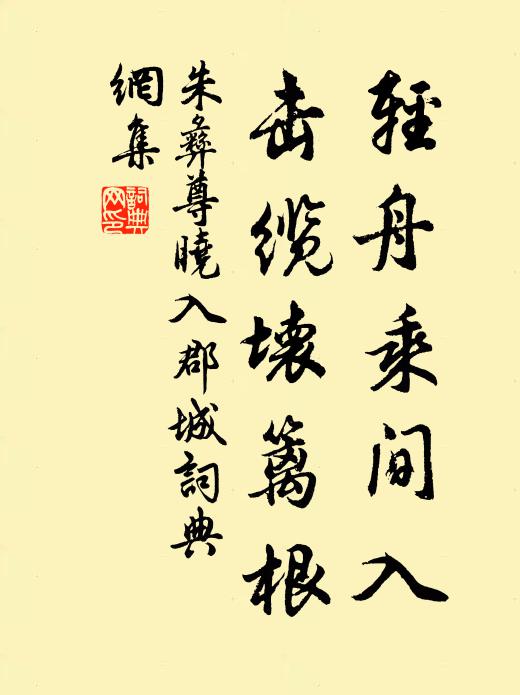 輕舟乘间入
击缆壞篱根
朱彝尊曉入郡城詞典
網集
詞典
网印